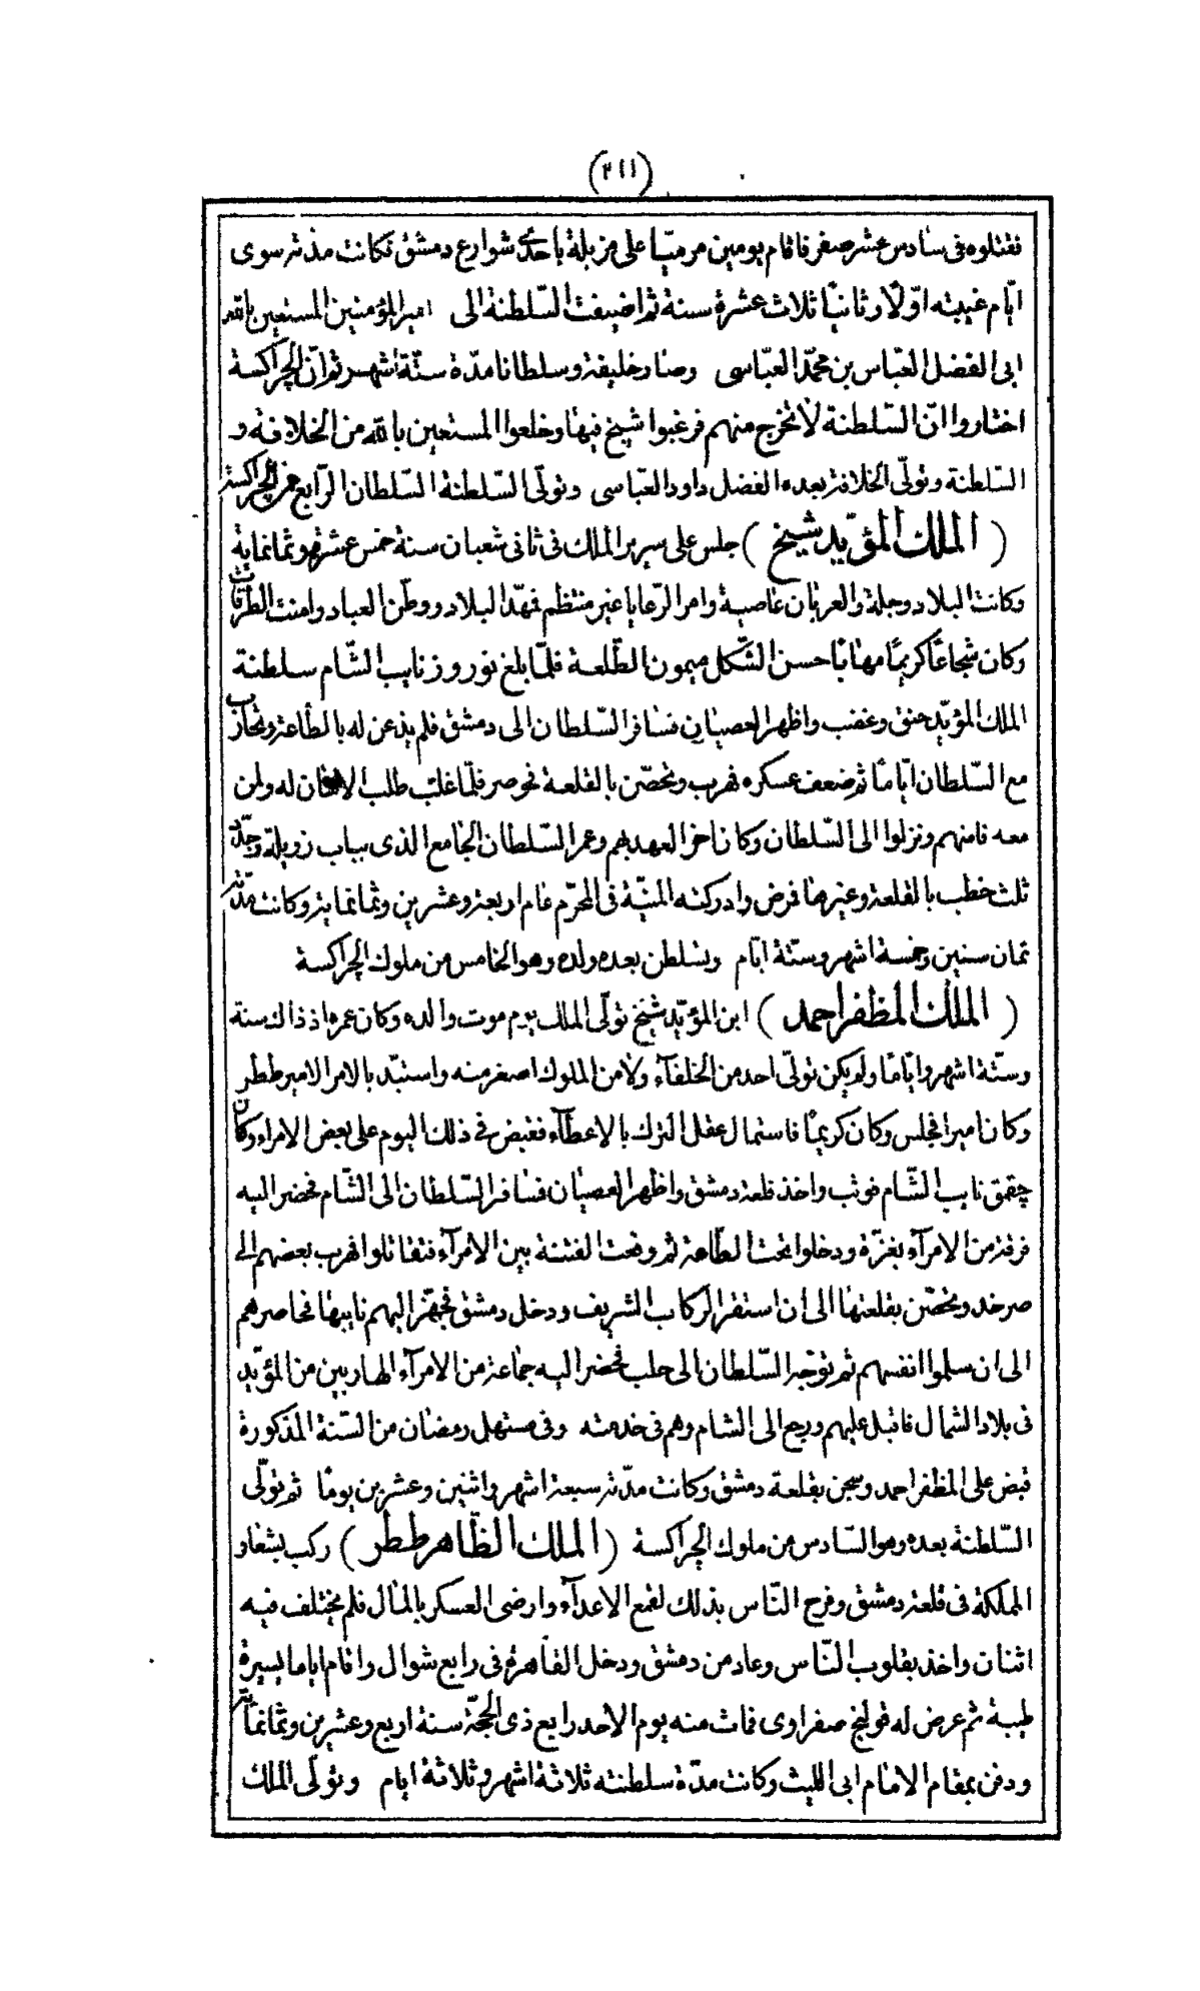 (٢١١)
فقتلوه فى سادس عشر صفر فاقام يومين مرميّا على مزبلة باحدى شوارع دمشق فكانت مدّته سوى
ايّام غيبته اوّلا وثانيًا ثلاث عشرة سنة ثم اضيفت السّلطنة الى امير المؤمنين المستعين بالله
ابى الفضل العبّاس بن محمّد العبّاسى وصار خليفة وسلطانا مدّة ستّة اشهر ثم انّ الچراكسة
اختاروا انّ السّلطنة لا تخرج منهم فرغبوا شيخ فيها وخلعوا المستعين بالله من الخلافة و
السّلطنة وتولّى الخلافة بعده الفضل داود العبّاسى وتولّى السّلطنة السّلطان الرّابع من الچراكسة
( الملك المؤيّد شيخ ) جلس على سرير الملك فى ثانى شعبان سنة خمس عشرة وثمانماية
وكانت البلاد وجلة والعربان عاصية وامر الرّعايا غير منتظم فمهّد البلاد ووطّن العباد وامنت الطّرقات
وكان شجاعًا كريمًا مهابًا حسن الشّكل ميمون الطّلعة فلمّا بلغ نوروز نايب الشّام سلطنة
الملك المؤيّد حنق وغضب واظهر العصيان فسافر السّلطان الى دمشق فلم يذعن له بالطاعة وتحارب
مع السّلطان ايّامًا ثم ضعف عسكره فهرب وتحصّن بالقلعة فحوصر فلمّا غلب طلب الامان له ولمن
معه فامنهم ونزلوا الى السّلطان وكان اخر العهد بهم وعمر السّلطان الجامع الذى بباب زويلة وجدّد
ثلث خطب بالقلعة وغيرها فمرض وادركته المنيّة فى المحرّم عام اربعة وعشرين وثمانماية وكانت مدّته
ثمان سنين وخمسة اشهر وستّة ايّام وتسلطن بعده ولده وهو الخامس من ملوك الچراكسة
( الملك المظفر احمد ) ابن المؤيّد شيخ تولّى الملك يوم موت والده وكان عمره اذ ذاك سنة
وستّة اشهر وايّامًا ولم يكن تولّى احد من الخلفآء ولا من الملوك اصغر منه واستبّد بالامر الامير ططر
وكان امير مجلس وكان كريمًا فاستمال عقل الترك بالاعطآء فقبض فى ذلك اليوم على بعض الامراء وكان
چقمق نايب الشّام فوثب واخذ قلعة دمشق واظهر العصيان فسافر السّلطان الى الشّام فحضر اليه
فرقة من الامرآء بغزّة ودخلوا تحت الطّاعة ثم وقعت الفتنة بين الامرآء فتقاتلوا فهرب بعضهم الى
صرخد وتحصّن بقلعتها الى ان استقر الركاب الشريف ودخل دمشق فجهّز اليهم نايبها فحاصرهم
الى ان سلموا انفسهم ثم توجّه السّلطان الى حلب فحضر اليه جماعة من الامرآء الهاربين من المؤيّد
فى بلاد الشمال فاقبل عليهم ورجع الى الشام وهم فى خدمته وفى مستهل رمضان من السّنة المذكورة
قبض على المظفر احمد وسجن بقلعة دمشق وكانت مدّته سبعة اشهر واثنين وعشرين يومًا ثم تولّى
السّلطنة بعده وهو السّادس من ملوك الچراكسة ( الملك الظّاهر ططر ) ركب بشعار
المملكة فى قلعة دمشق وفرح النّاس بذلك لقمع الاعدآء وارضى العسكر بالمال فلم يختلف فيه
اثنان واخذ بقلوب النّاس وعاد من دمشق ودخل القاهرة فى رابع شوال واقام اياما يسيرة
طيبة ثم عرض له قولنج صفراوى فمات منه يوم الاحد رابع ذى الحجّة سنة اربع وعشرين وثمانماية
ودفن بمقام الامام ابى الليث وكانت مدّة سلطنته ثلاثة اشهر وثلاثة ايام وتولّى الملك